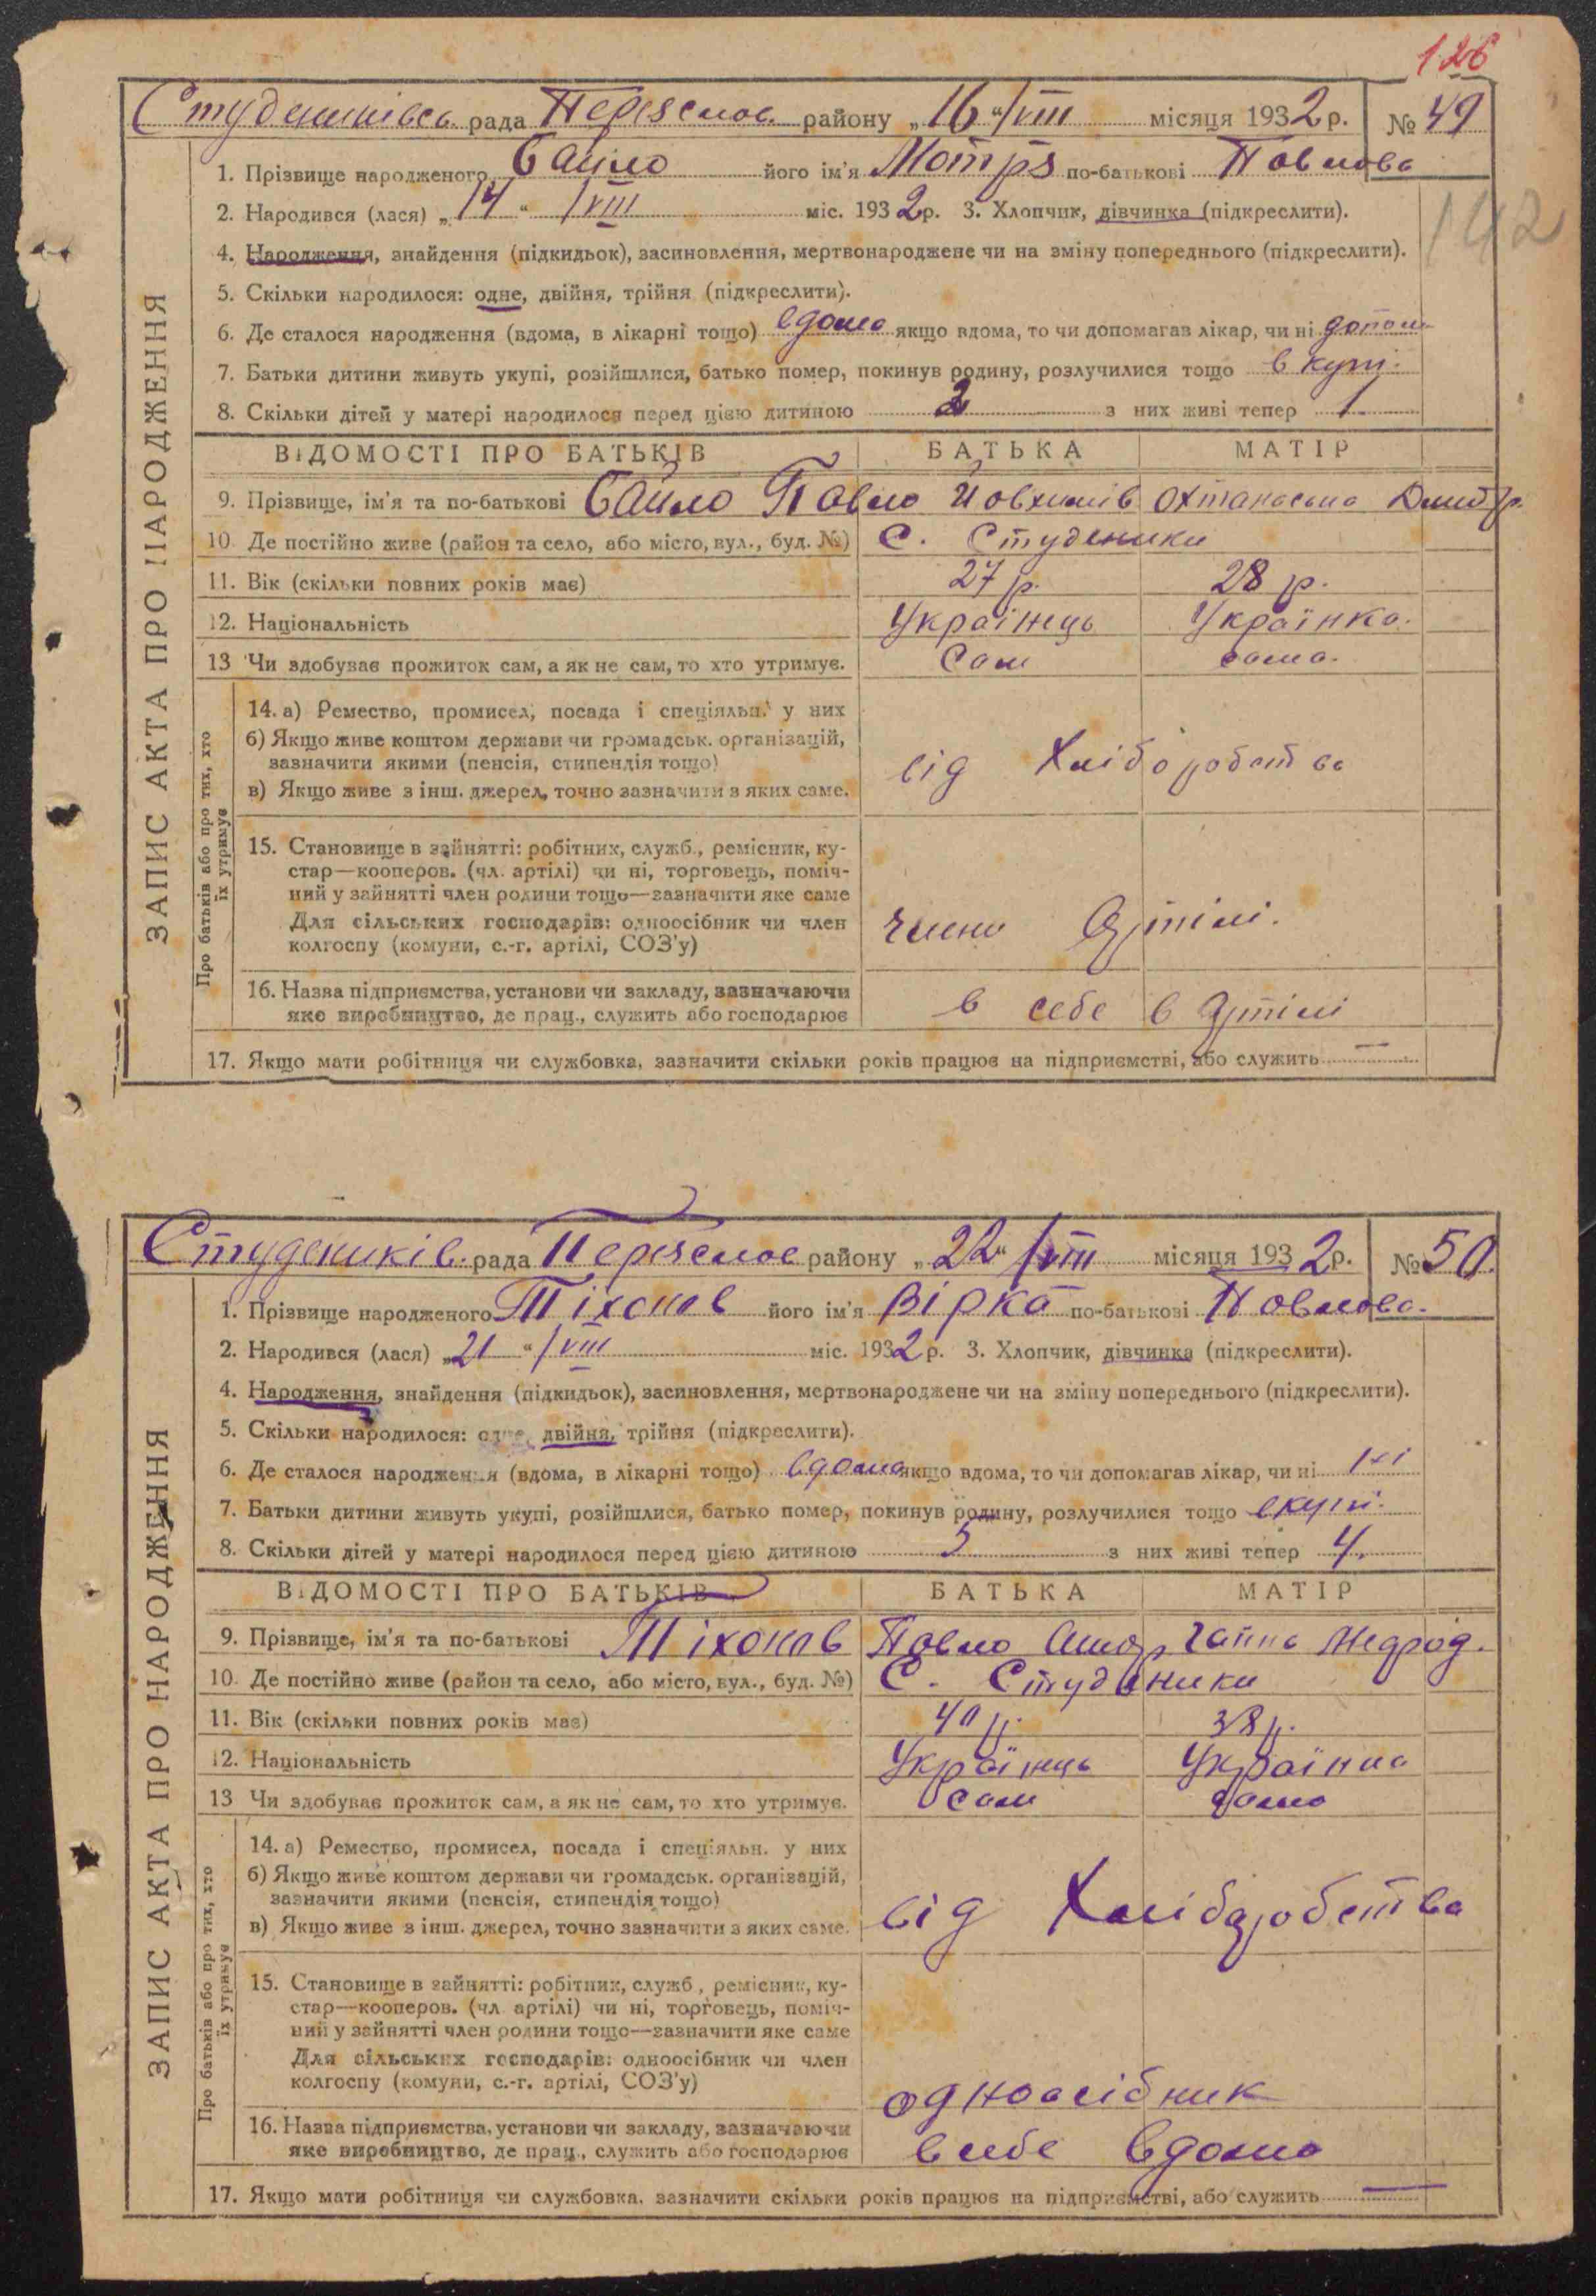 126
Студениківсь рада Переяслов. району „16“ VIII місяця 1932 р. № 49
142
1. Прізвище народженого Байло його ім'я Мотря по-батькові Повлова
2. Народився (лася) „14“ VIII міс. 1932 р. 3. Хлопчик, дівчинка (підкреслити).
4. Народження, знайдення (підкидьок), засиновлення, мертвонароджене чи на зміну попереднього (підкреслити).
5. Скільки народилося: одне, двійня, трійня (підкреслити).
6. Де сталося народження (вдома, в лікарні тощо) вдома якщо вдома, то чи допомагав лікар, чи ні допом
7. Батьки дитини живуть укупі, розійшлися, батько помер, покинув родину, розлучилися тощо в купі.
8. Скільки дітей у матері народилося перед цією дитиною 2 з них живі тепер 1
ВІДОМОСТІ ПРО БАТЬКІВ БАТЬКА МАТІР
9. Прізвище, ім'я та по-батькові Байло Повло Йовхимів Охтанасьио Дмитр.
10. Де постійно живе (район та село, або місто, вул., буд. №) С. Студеники
11. Вік (скільки повних років має) 27 р. 28 р.
12. Національність Українець Українко.
13 Чи здобуває прожиток сам, а як не сам, то хто утримує. Сам сама.
14. а) Ремество, промисел, посада і спеціяльн. у них
б) Якщо живе коштом держави чи громадськ. організацій,
зазначити якими (пенсія, стипендія тощо)
в) Якщо живе з інш. джерел, точно зазначити з яких саме. від Хліборобства
15. Становище в зайнятті: робітник, служб., ремісник, ку-
стар—кооперов. (чл. артілі) чи ні, торговець, поміч-
ний у зайнятті член родини тощо—зазначити яке саме
Для сільських господарів: одноосібник чи член
колгоспу (комуни, с.-г. артілі, СОЗ'у) члени Артілі.
16. Назва підприємства, установи чи закладу, зазначаючи
яке виробництво, де прац., служить або господарює в себе в Артілі
17. Якщо мати робітниця чи службовка, зазначити скільки років працює на підприємстві, або служить —
ЗАПИС АКТА ПРО НАРОДЖЕННЯ
Про батьків або про тих, хто
їх утримує
Студеників. рада Переяслов району „22“ VIII місяця 1932 р. № 50.
1. Прізвище народженого Тіхонов його ім'я Вірка по-батькові Повлова.
2. Народився (лася) „21“ VIII міс. 1932 р. 3. Хлопчик, дівчинка (підкреслити).
4. Народження, знайдення (підкидьок), засиновлення, мертвонароджене чи на зміну попереднього (підкреслити).
5. Скільки народилося: одне, двійня, трійня (підкреслити).
6. Де сталося народження (вдома, в лікарні тощо) вдома якщо вдома, то чи допомагав лікар, чи ні ні
7. Батьки дитини живуть укупі, розійшлися, батько помер, покинув родину, розлучилися тощо вкупі.
8. Скільки дітей у матері народилося перед цією дитиною 5 з них живі тепер 4.
ВІДОМОСТІ ПРО БАТЬКІВ БАТЬКА МАТІР
9. Прізвище, ім'я та по-батькові Тіхонов Повло Ганна
10. Де постійно живе (район та село, або місто, вул., буд. №) С. Студеники
11. Вік (скільки повних років має) 40 р. 38 р.
12. Національність Українець Українка
13 Чи здобуває прожиток сам, а як не сам, то хто утримує. Сам
14. а) Ремество, промисел, посада і спеціяльн. у них
б) Якщо живе коштом держави чи громадськ. організацій,
зазначити якими (пенсія, стипендія тощо)
в) Якщо живе з інш. джерел, точно зазначити з яких саме. від Хліборобства
15. Становище в зайнятті: робітник, служб., ремісник, ку-
стар—кооперов. (чл. артілі) чи ні, торговець, поміч-
ний у зайнятті член родини тощо—зазначити яке саме
Для сільських господарів: одноосібник чи член
колгоспу (комуни, с.-г. артілі, СОЗ'у) одноосібник
16. Назва підприємства, установи чи закладу, зазначаючи
яке виробництво, де прац., служить або господарює в себе вдома
17. Якщо мати робітниця чи службовка, зазначити скільки років працює на підприємстві, або служить —
ЗАПИС АКТА ПРО НАРОДЖЕННЯ
Про батьків або про тих, хто
їх утримує